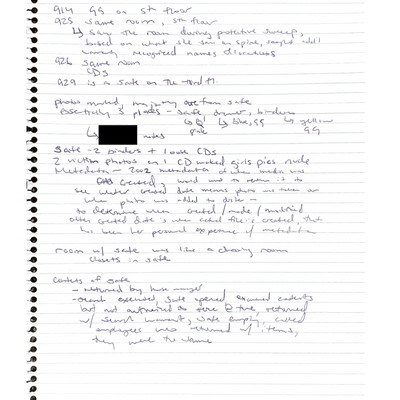 914 GG on 5th floor
925 same room, 5th floor
↳ saw the room during protective sweep,
based on what she saw on spine,
recognized names
926 same room
CDs
929 is a safe on the
photos marked, majority are from safe
essentially 3 places - safe, drawer, binders
↳ blue, GG ↳ yellow
pink GG
↳ notes
Safe - 2 binders + loose CDs
2 victim photos on 1 CD marked girls pics nude
Metadata - 2002 metadata of when media was
created,
see whether created date means photo was taken or
when photo was added to drive -
to determine when created / made / modified
often created date is when actual file is created, that
has been her personal experience w/ metadata
room w/ safe was like a
closets in safe
Contents of safe
- returned by house manager
- search executed, safe opened, examined contents
but not authorized to seize @ time, returned
w/ search warrant, safe empty, called
employees who returned w/ items,
they were the same